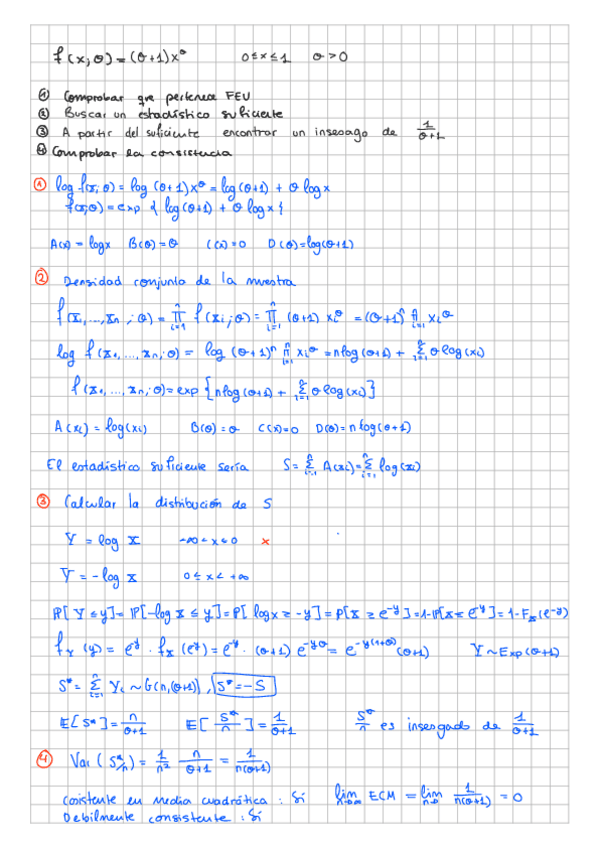 f(x;θ) = (θ+1)x^θ 0≤x≤1 θ>0
① Comprobar que pertenece FEU
② Buscar un estadístico suficiente
③ A partir del suficiente encontrar un insesgado de 1/(θ+1)
④ Comprobar la consistencia
① log f(x;θ) = log (θ+1)x^θ = log(θ+1) + θ log x
f(x;θ) = exp { log(θ+1) + θ log x }
A(x) = log x B(θ) = θ C(x) = 0 D(θ) = log(θ+1)
② Densidad conjunta de la muestra
f(x₁,...,xₙ;θ) = ∏ᵢ₌₁ⁿ f(xᵢ;θ) = ∏ᵢ₌₁ⁿ (θ+1) xᵢ^θ = (θ+1)ⁿ ∏ᵢ₌₁ⁿ xᵢ^θ
log f(x₁,...,xₙ;θ) = log (θ+1)ⁿ ∏ᵢ₌₁ⁿ xᵢ^θ = n log(θ+1) + ∑ᵢ₌₁ⁿ θ log(xᵢ)
f(x₁,...,xₙ;θ) = exp { n log(θ+1) + ∑ᵢ₌₁ⁿ θ log(xᵢ) }
A(xᵢ) = log(xᵢ) B(θ) = θ C(x) = 0 D(θ) = n log(θ+1)
El estadístico suficiente sería S = ∑ᵢ₌₁ⁿ A(xᵢ) = ∑ᵢ₌₁ⁿ log(xᵢ)
③ Calcular la distribución de S
Y = log X -∞<x<0 ×
Y = -log X 0≤x<+∞
P[Y≤y] = P[-log X ≤ y] = P[log x ≥ -y] = P[X ≥ e^-y] = 1-P[X≤e^-y] = 1-Fₓ(e^-y)
f_Y(y) = e^-y · f_X(e^-y) = e^-y · (θ+1) e^-yθ = e^-y(1+θ) (θ+1) Y~Exp(θ+1)
S* = ∑ᵢ₌₁ⁿ Yᵢ ~ G(n,(θ+1)), S* = -S
E[S*] = n/(θ+1) E[S*/n] = 1/(θ+1) S*/n es insesgado de 1/(θ+1)
④ Var(S*/n) = 1/n² n/(θ+1) = 1/(n(θ+1))
Cosistente en Media cuadrática : Sí lim n→∞ ECM = lim n→∞ 1/(n(θ+1)) = 0
Debilmente consistente : Sí